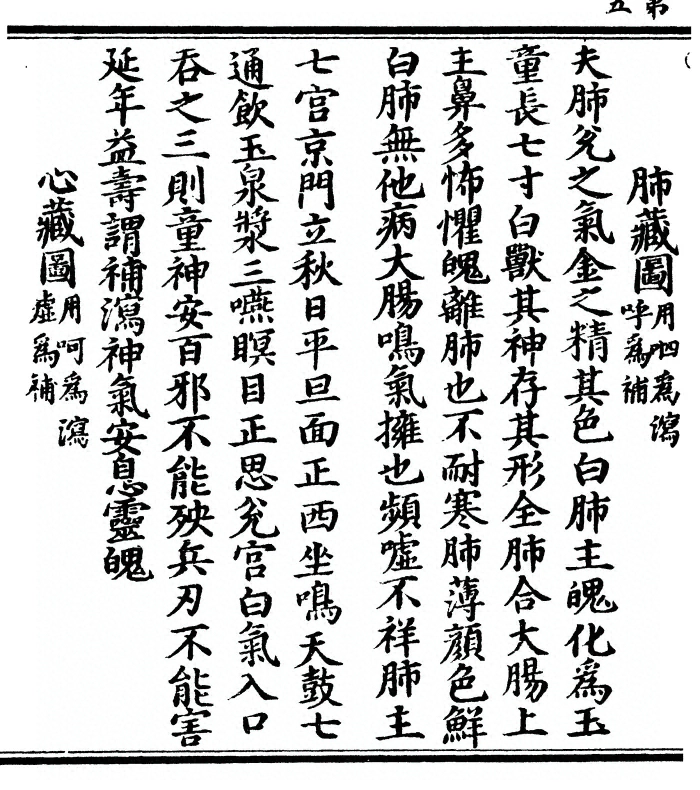 第
五
肺藏圖 用呬為瀉 呼為補
夫肺兌之氣金之精其色白肺主魄化為玉
童長七寸白獸其神存其形全肺合大腸上
主鼻多怖懼魄離肺也不耐寒肺薄顏色鮮
白肺無他病大腸鳴氣擁也頻噓不祥肺主
七宮京門立秋日平旦面正西坐鳴天鼓七
通飲玉泉漿三嚥瞑目正思兌宮白氣入口
吞之三則童神安百邪不能殃兵刃不能害
延年益壽謂補瀉神氣安息靈魄
心藏圖 用呵為瀉 虛為補